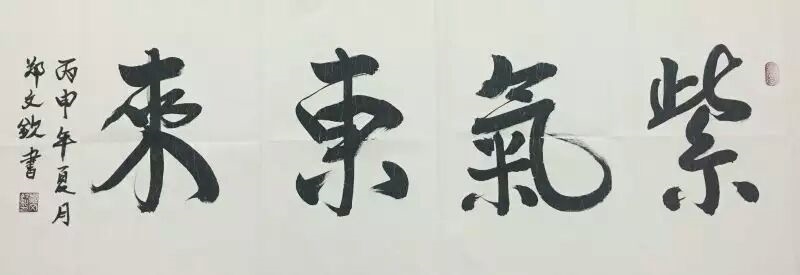 紫氣東來
丙申年夏月
鄭文銳書